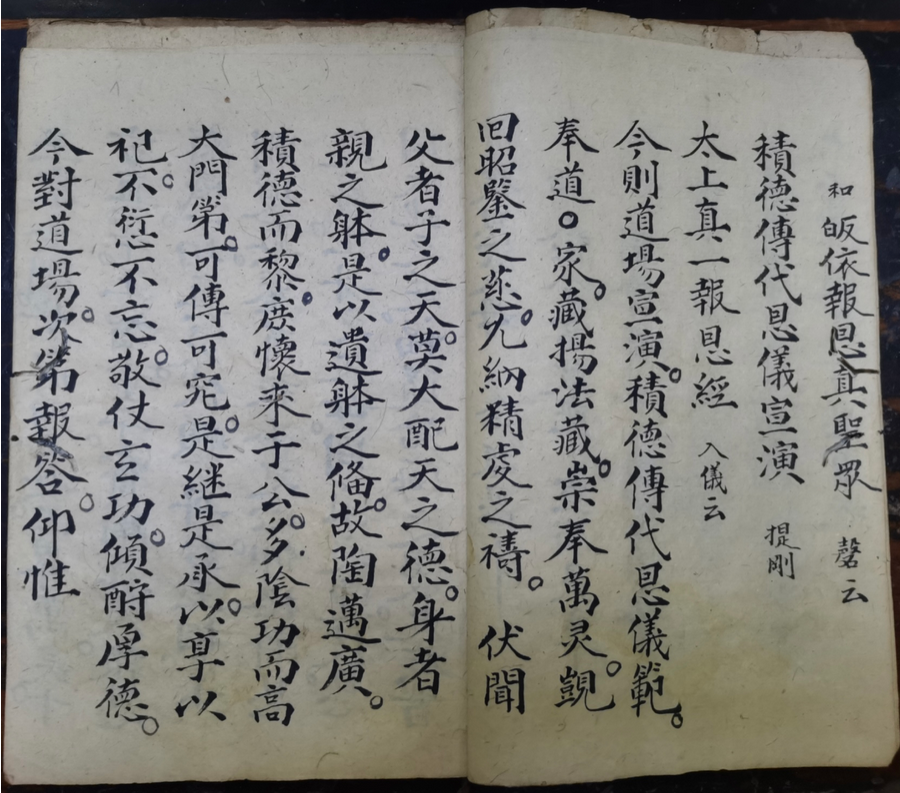 和 皈依報恩真聖眾 磬云
積德傳代恩儀宣演 提剛
太上真一報恩經 入儀云
今則道場宣演。積德傳代恩儀範。
奉道。家藏。揚法藏。崇奉萬灵。覬
回昭鑒之慈。允納精虔之禱。伏聞
父者子之天。莫大配天之德。身者
親之躰。是以遺躰之脩。故陶邁廣。
積德而黎。庶懷来于公。多陰功而高
大門第。可傳可究。是継是承。以享以
祀。不愆不忘。敬仗玄功。傾酧厚德。
今對道場。次第報答。仰惟